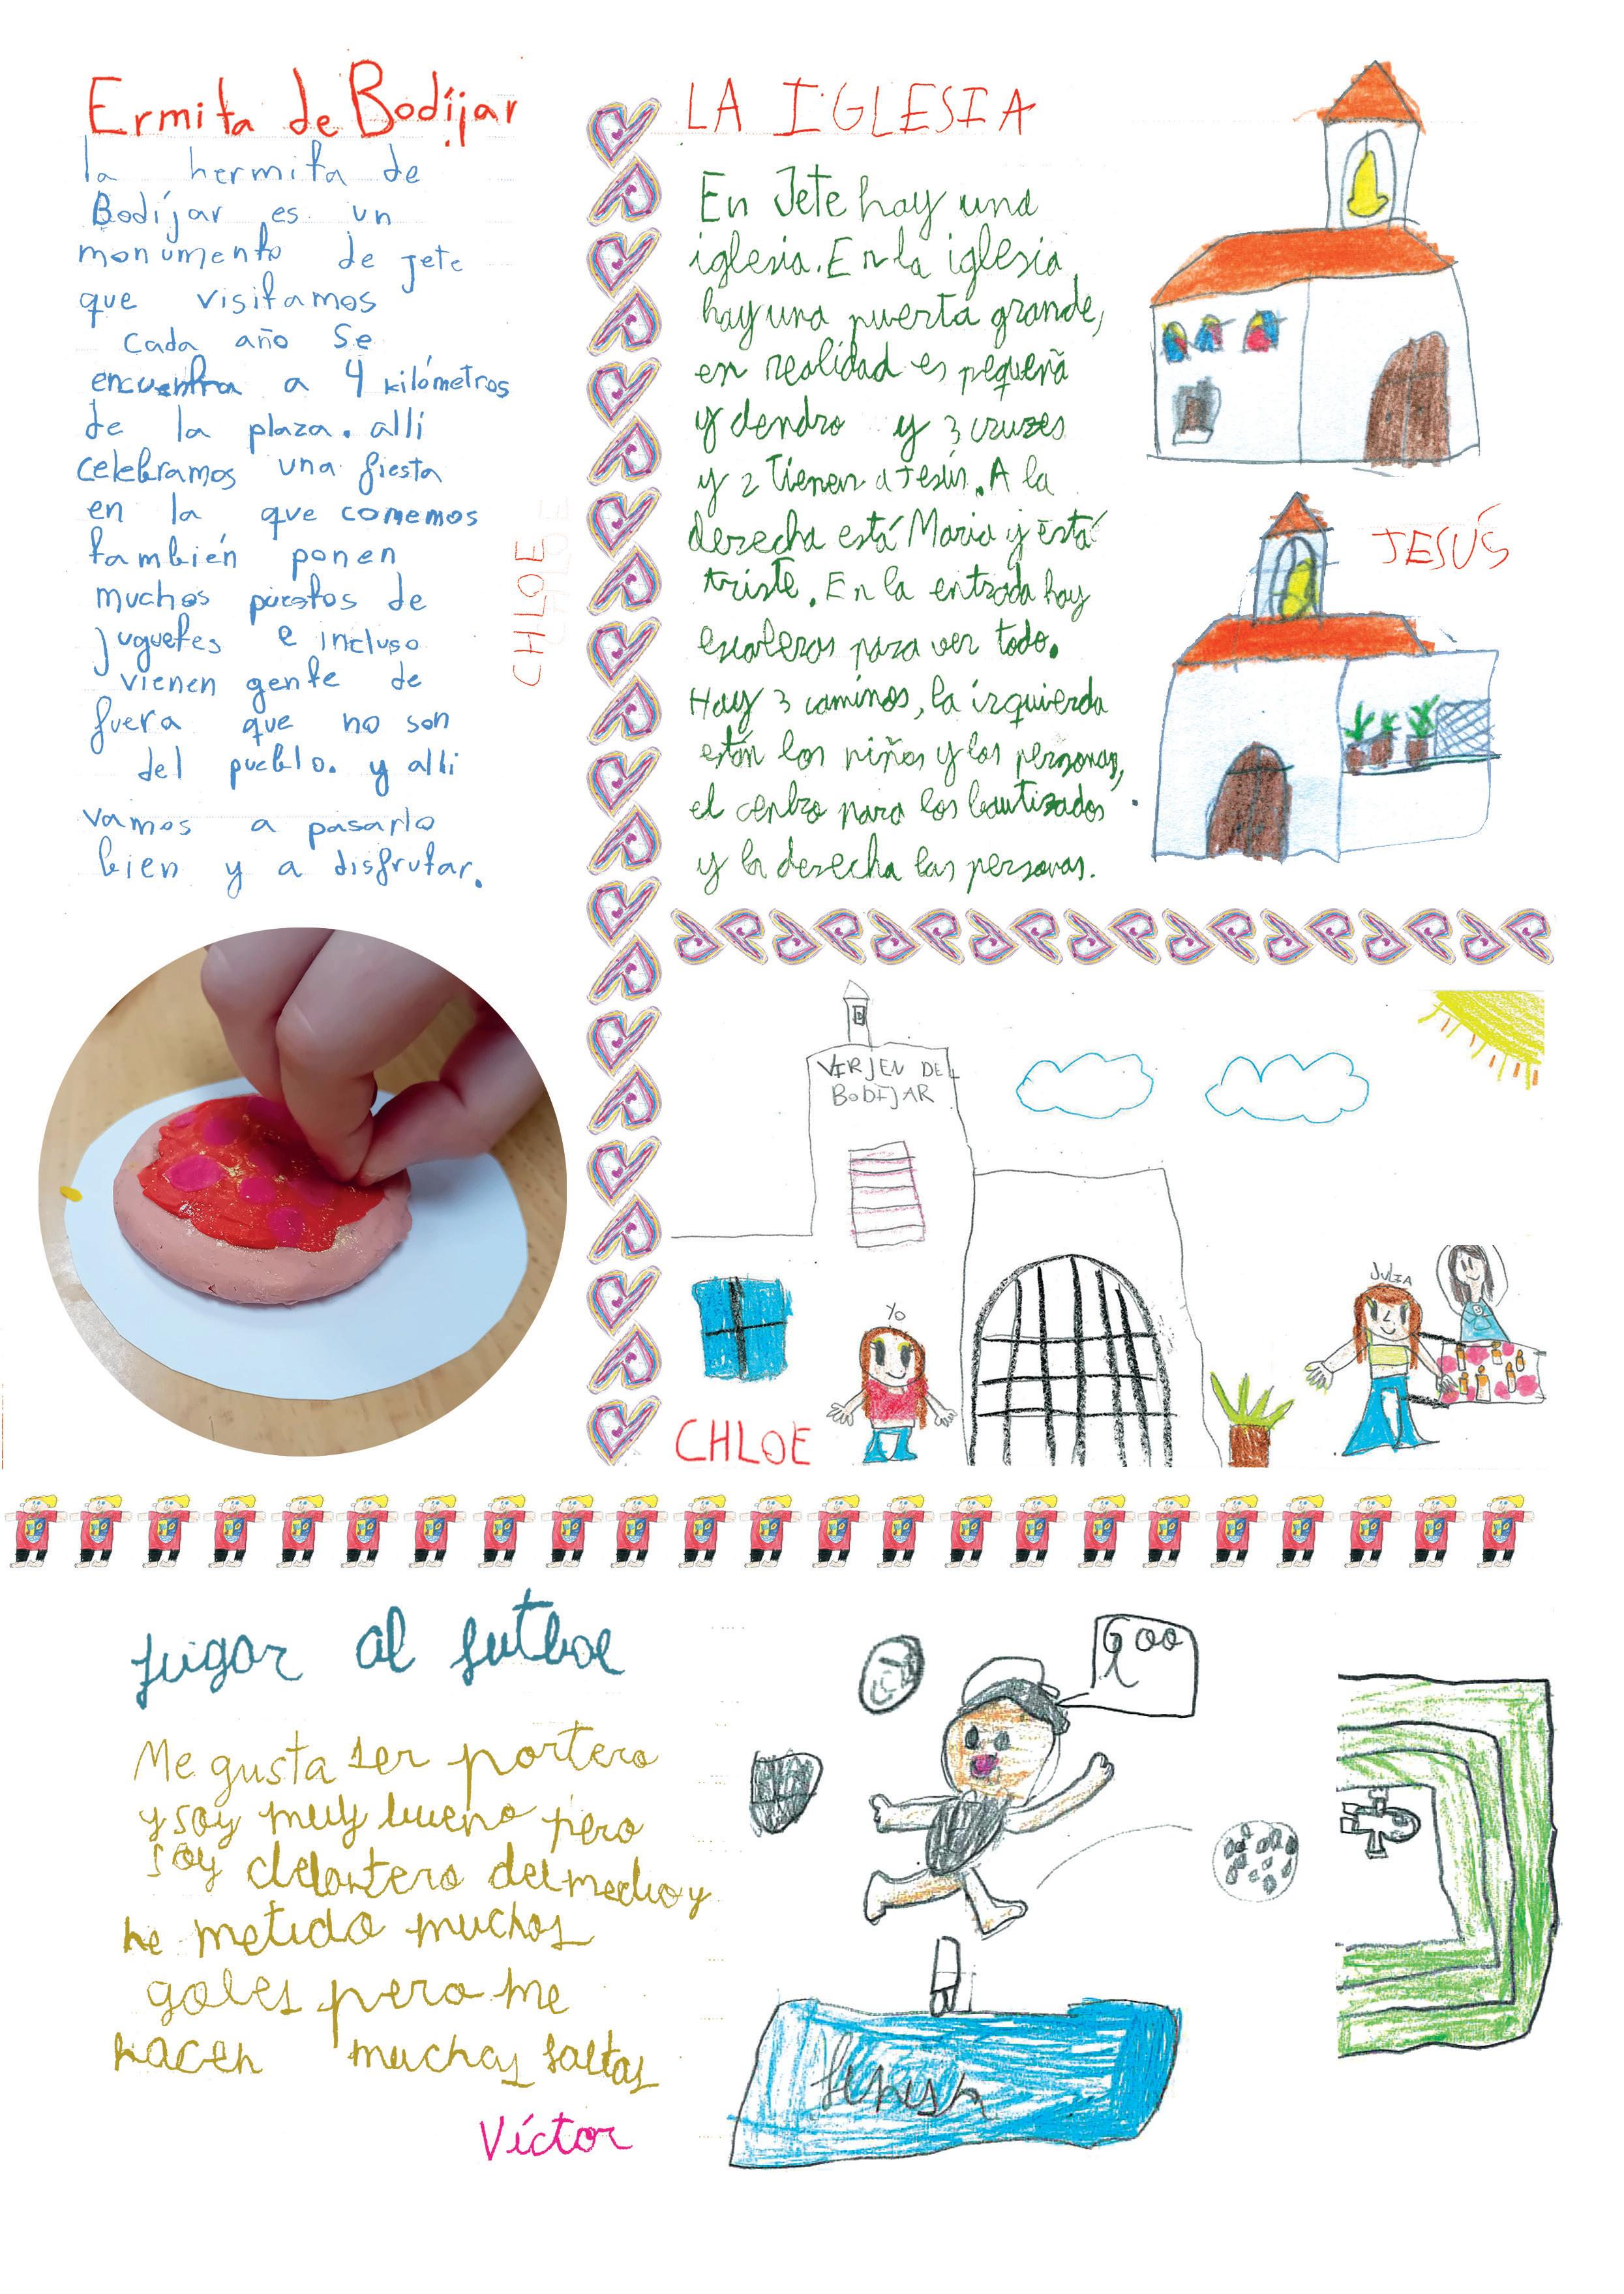 Ermita de Bodíjar
la hermita de
Bodíjar es un
monumento de jete
que visitamos
cada año Se
encuentra a 4 kilómetros
de la plaza. allí
celebramos una fiesta
en la que comemos
también ponen
muchos puestos de
juguetes e incluso
vienen gente de
fuera que no son
del pueblo. y allí
vamos a pasarlo
bien y a disfrutar.
CHLOE
LA IGLESIA
En Jete hay una
iglesia. En la iglesia
hay una puerta grande,
en realidad es pequeña
y dendro y 3 cruzes
y 2 tienen a Jesús. A la
derecha está Maria y está
triste. En la entrada hay
escaleras para ver todo.
Hay 3 caminos, la izquierda
están los niños y las personas,
el centro para los bautizados
y la derecha las personas.
JESÚS
VIRJEN DE
BODIJAR
Yo
JULIA
CHLOE
jugar al futbol
Me gusta ser portero
y soy muy bueno pero
soy delantero del medio y
he metido muchos
goles pero me
hacen muchas faltas
Víctor
Goo
l